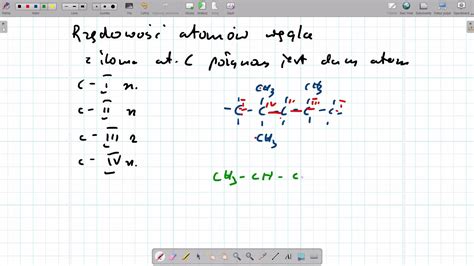 Rzędowość atomów węgla
z iloma at. C połączony jest dany atom
C - I rz.
C - II rz.
C - III rz.
C - IV rz.
CH3 CH3
I IV II III I
- C - C - C - C - C -
CH3
CH3 - CH - C